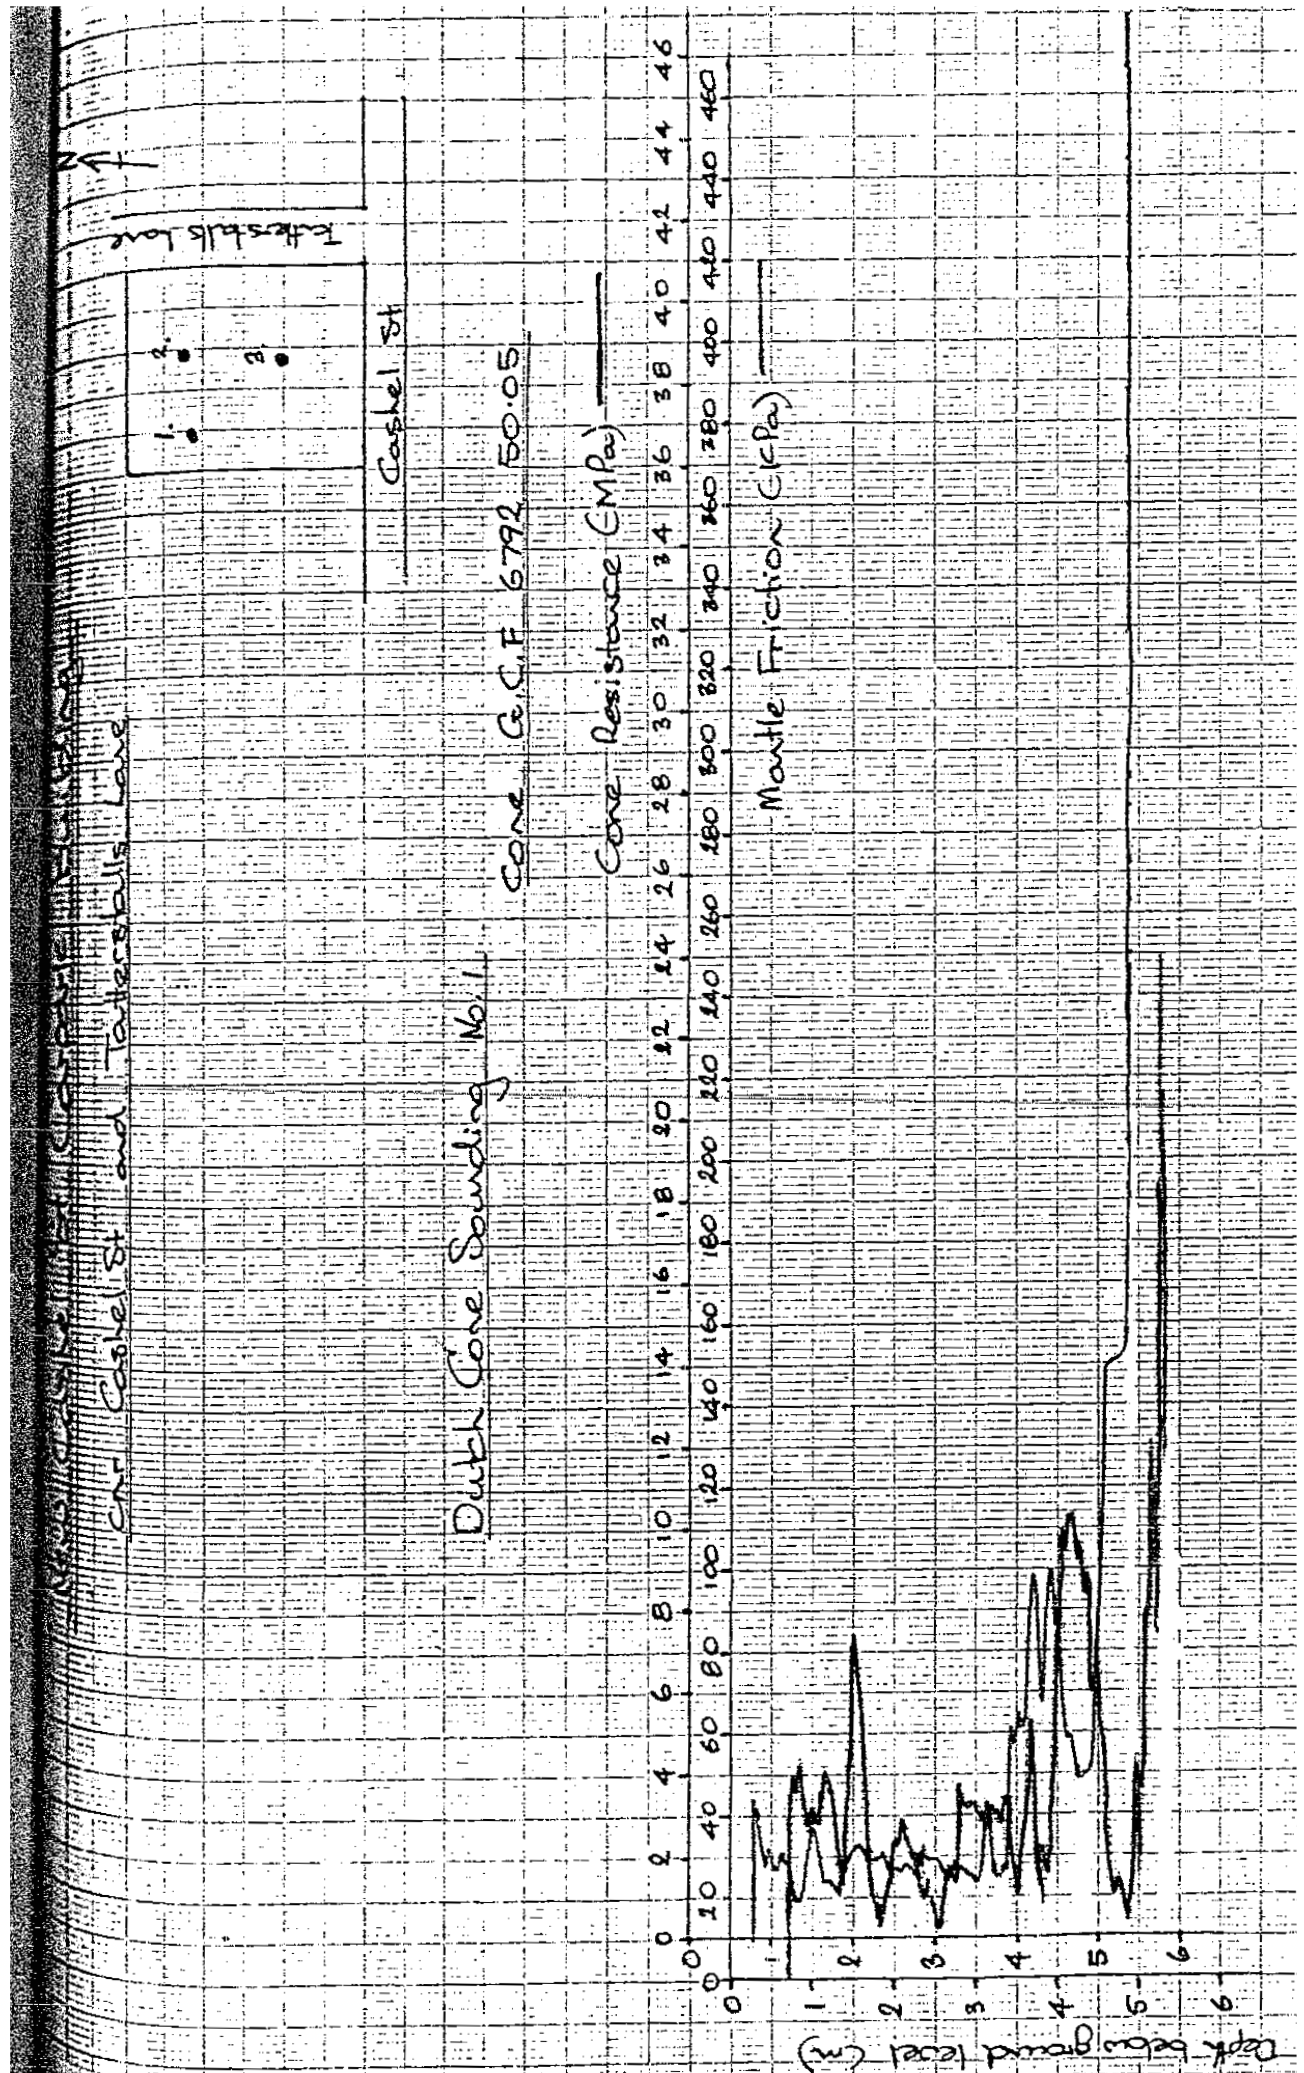 Cnr Cashel St and Tattersalls Lane
N
Tattersalls Lane
1.
2.
3.
Cashel St
Dutch Cone Sounding No. 1
Cone G.C.F 6792 50.05
Cone Resistance (MPa)
0 2 4 6 8 10 12 14 16 18 20 22 24 26 28 30 32 34 36 38 40 42 44 46
0 20 40 60 80 100 120 140 160 180 200 220 240 260 280 300 320 340 360 380 400 420 440 460
Mantle Friction (KPa)
0 1 2 3 4 5 6
0 1 2 3 4 5 6
Depth below ground level (m)